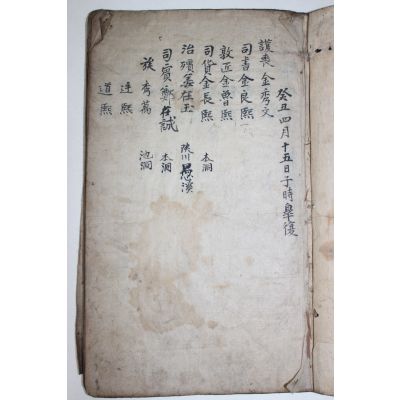 癸丑四月十五日子時皐復
護喪金秀文
司書金良熙
敦匠金曾熙
司貨金長熙 本洞
治殯姜在玉 陜川愚溪
司賓鄭在誠 本洞
族秀萬 池洞
達熙
道熙